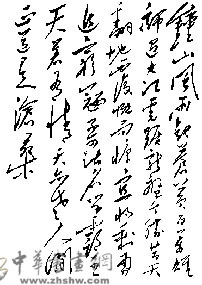 钟山风雨起苍黄百万雄
师过大江虎踞龙盘今胜昔天
翻地覆慨而慷宜将剩勇
追穷寇不可沽名学霸王
天若有情天亦老人间
正道是沧桑
中华书画网
www.zhshw.com